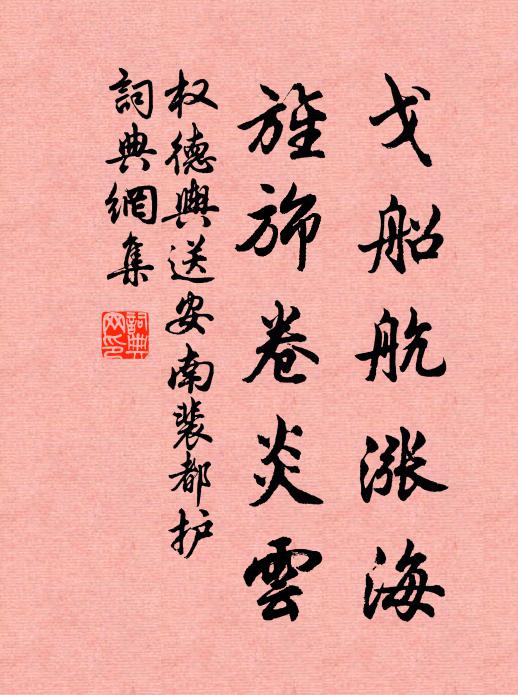 戈船航涨海
旌旆卷炎雲
权德輿送安南裴都护
詞典網集
詞典網印